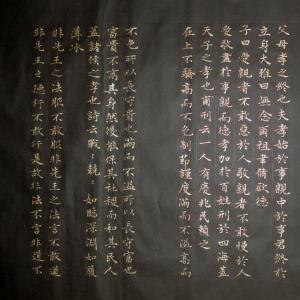 父母孝之終也夫孝始於事親中於事君終於
立身大雅曰無念爾祖聿脩厥德
子曰愛親者不敢惡於人敬親者不敢慢於人
愛敬盡於事親而德教加於百姓刑于四海蓋
天子之孝也甫刑云一人有慶兆民賴之
在上不驕高而不危制節謹度滿而不溢高而
不危所以長守貴也滿而不溢所以長守富也
富貴不離其身然後能保其社稷而和其民人
蓋諸侯之孝也詩云戰〻兢〻如臨深淵如履
薄冰
非先王之法服不敢服非先王之法言不敢道
非先王之德行不敢行是故非法不言非道不